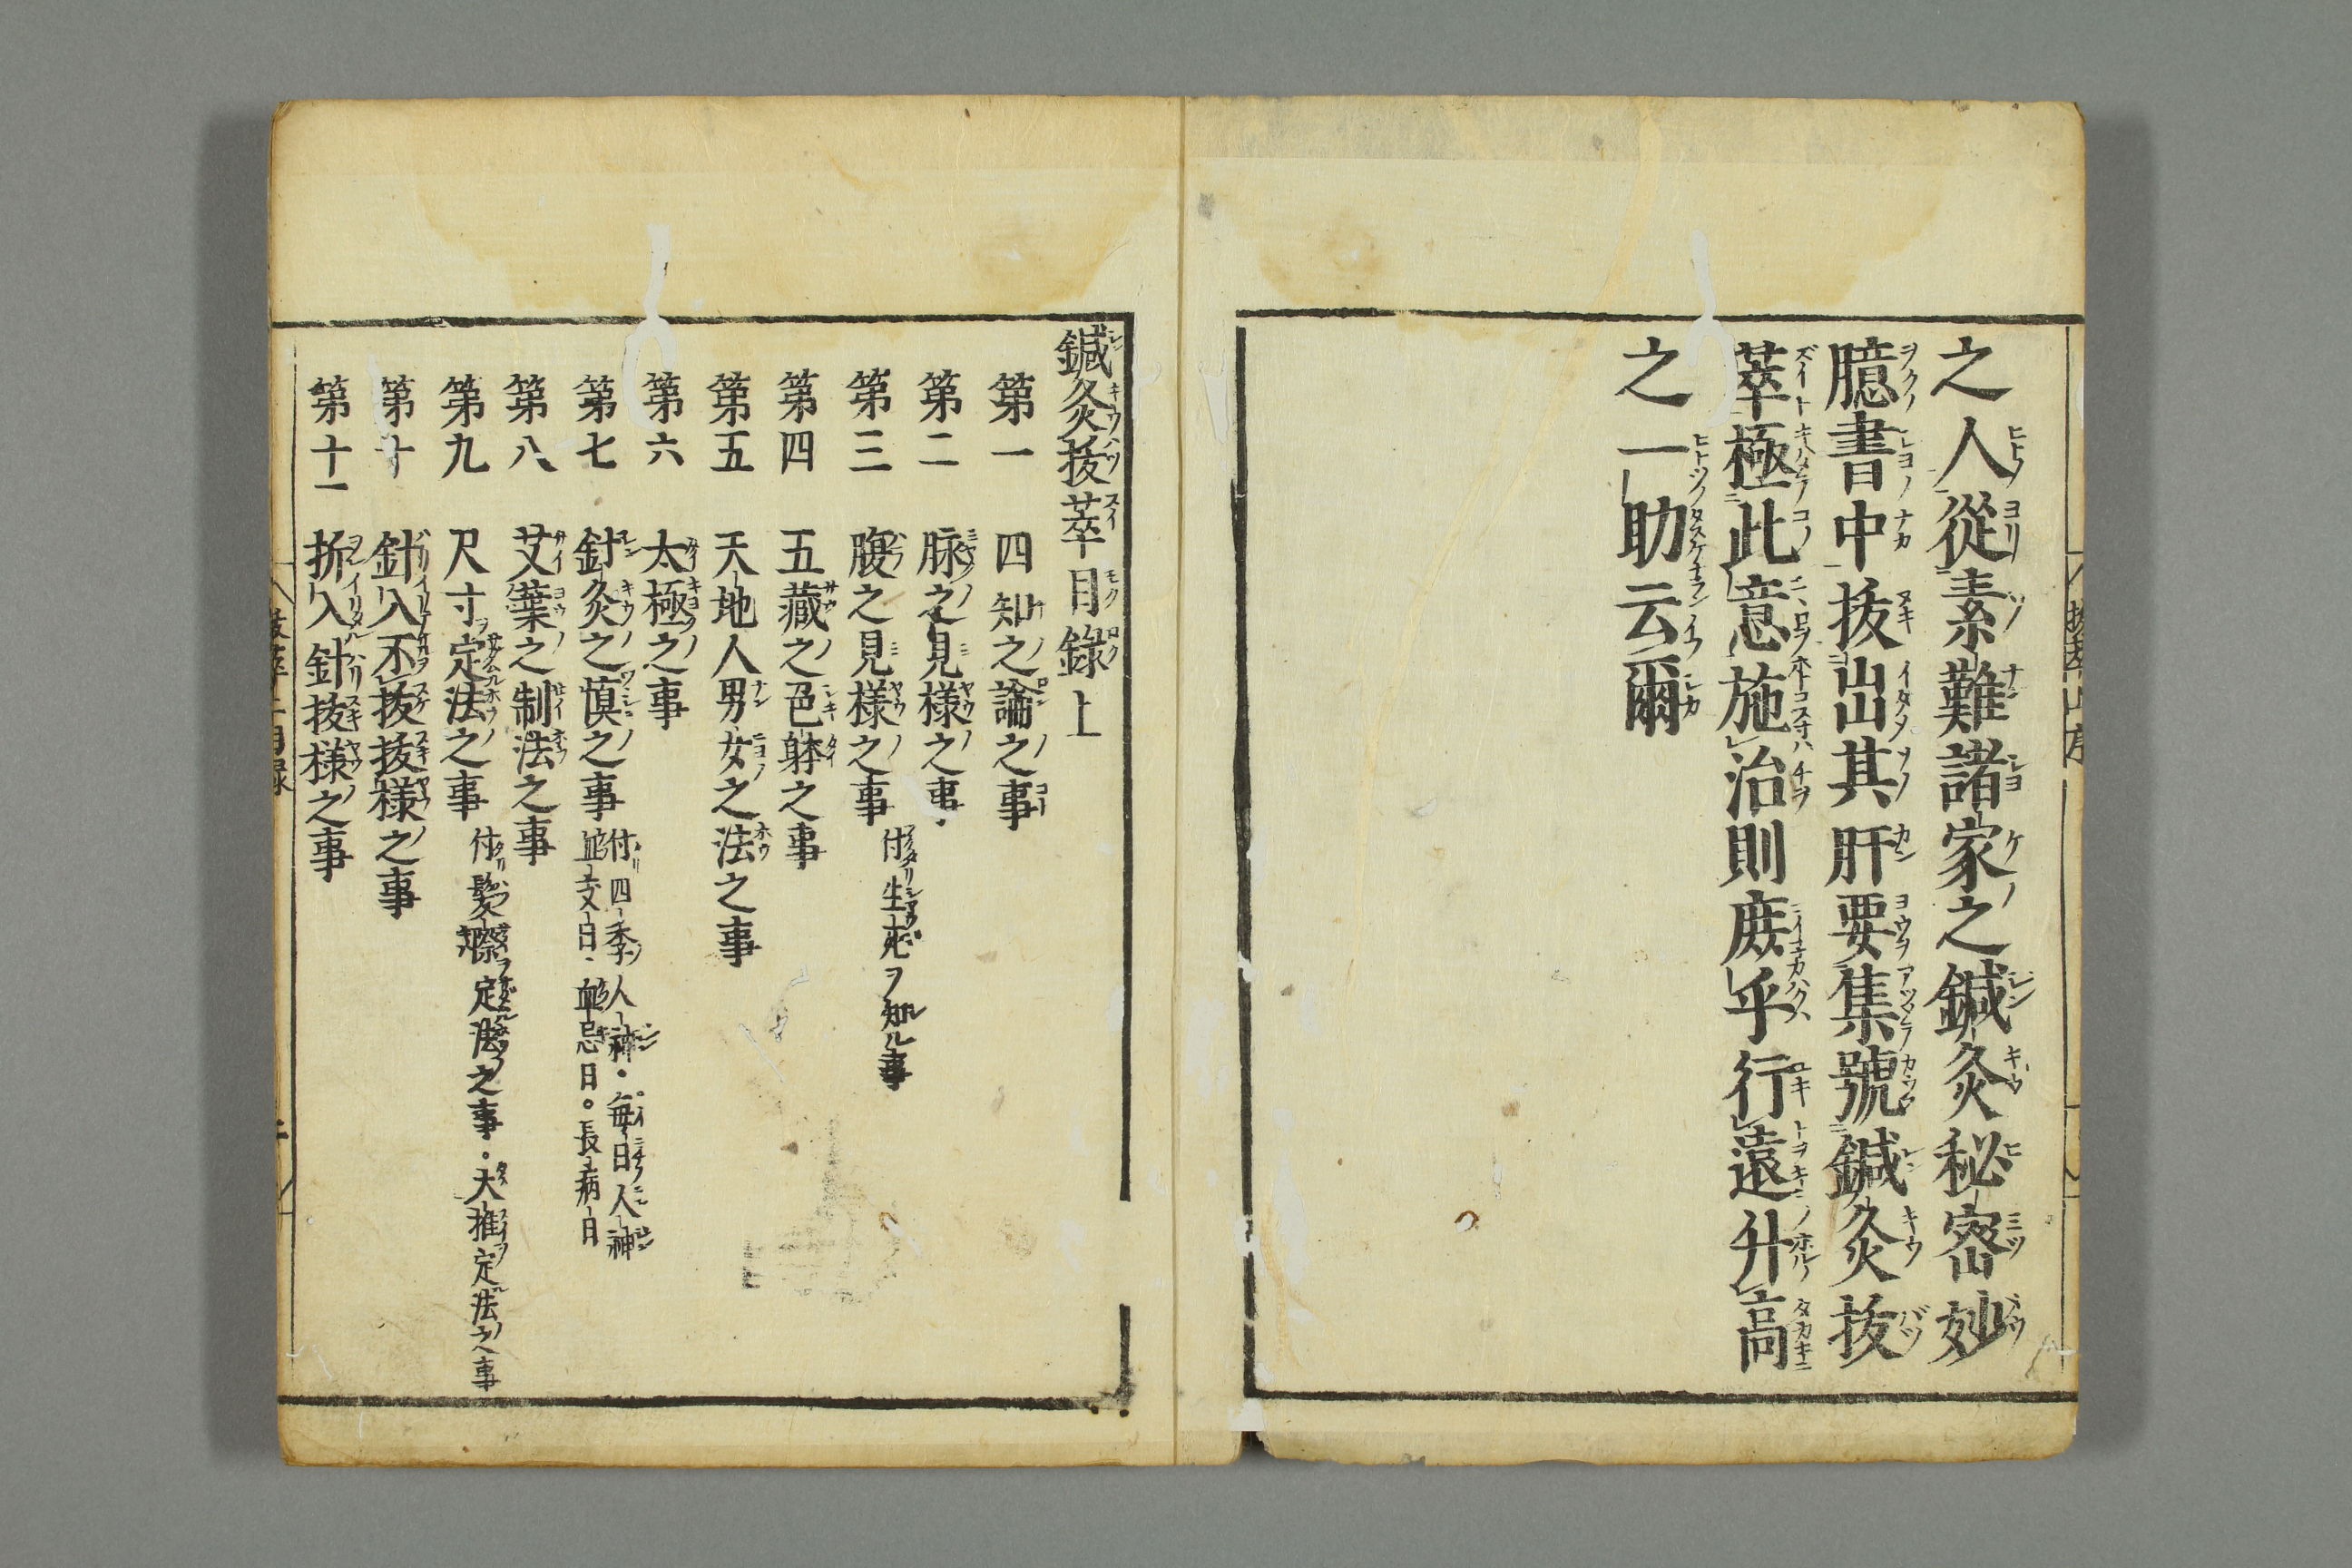 之人從素難諸家之鍼灸秘密妙
臆書中抜出其肝要集號鍼灸抜
萃極此意施治則庶乎行遠升高
之一助云爾
鍼灸抜萃目錄上
第一 四知之論之事
第二 脉之見様之事
第三 腹之見様之事 付生死ヲ知ル事
第四 五藏之色躰之事
第五 天地人男女之法之事
第六 太極之事
第七 針灸之慎之事 付四季人神・毎日人神
血支日・血忌日。長病日
第八 艾葉之制法之事
第九 尺寸定法之事 付髪際定法之事・大推定法之事
第十 針入不抜抜様之事
第十一 折入針抜様之事